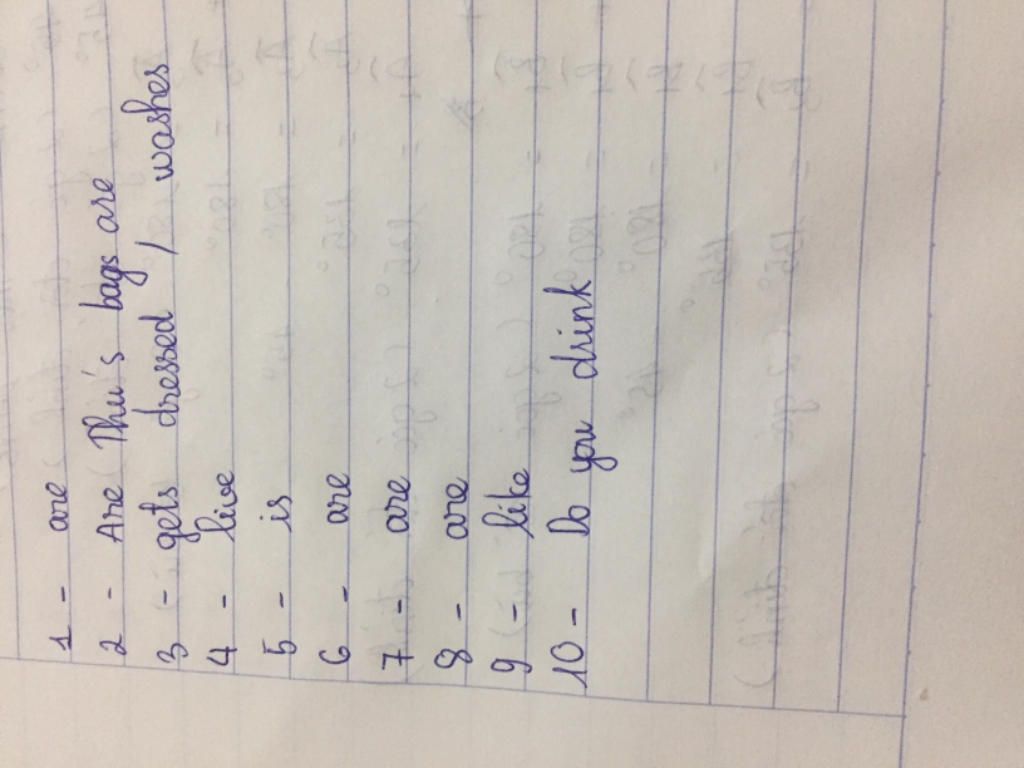 1 - are
2 - Are Thu's bags are
3 - gets dressed / washes
4 - live
5 - is
6 - are
7 - are
8 - are
9 - like
10 - Do you drink